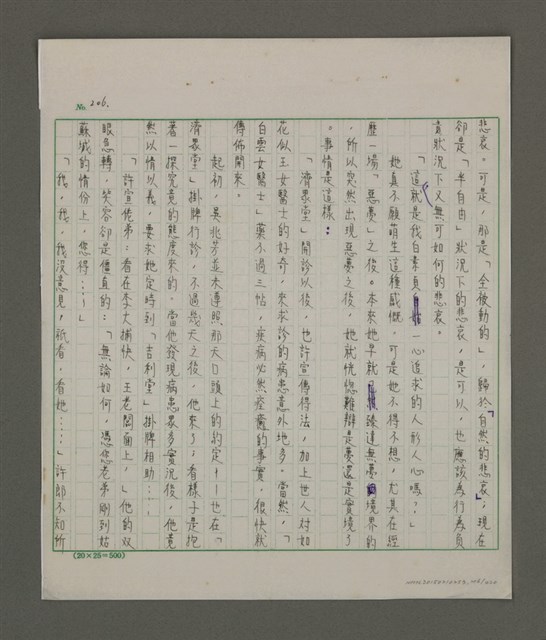 No. 206.
悲哀。可是,那是「全被動的」,歸於「自然的悲哀」;現在
卻是「半自由」狀況下的悲哀,是可以、也應該為行為負
責狀況下又無可如何的悲哀。
「這就是我白素貞一心追求的人形人心嗎?」
她真不願萌生這種感慨。可是她不得不想,尤其在經
歷一場「惡夢」之後。本來她早就臻達無夢境界的
,所以突然出現惡夢之後,她就恍惚難辯是夢還是實境了
。事情是這樣:
「濟眾堂」開診以後,也許宣傳得法,加上世人對如
花似玉女醫士的好奇,來求診的病患意外地多。當然,「
白雲女醫士」藥不過三帖,疾病必然痊癒的事實,很快就
傳佈開來。
起初,吳兆芳並未遵照那天口頭上的約定——也在「
濟眾堂」掛牌行診,不過幾天之後,他來了;看樣子是抱
著一探究竟的態度來的。當他發現病患眾多實況後,他竟
然以情以義,要求她定時到「吉利堂」掛牌相助……
「許宣佬弟:看在李大捕快,王老闆面上,」他的双
眼急轉,笑容卻是僵直的:「無論如何,憑您老弟剛到姑
蘇城的情份上,您得……!」
「我,我,我沒意見,祇看,看她……」許郎不知所
(20×25=500)